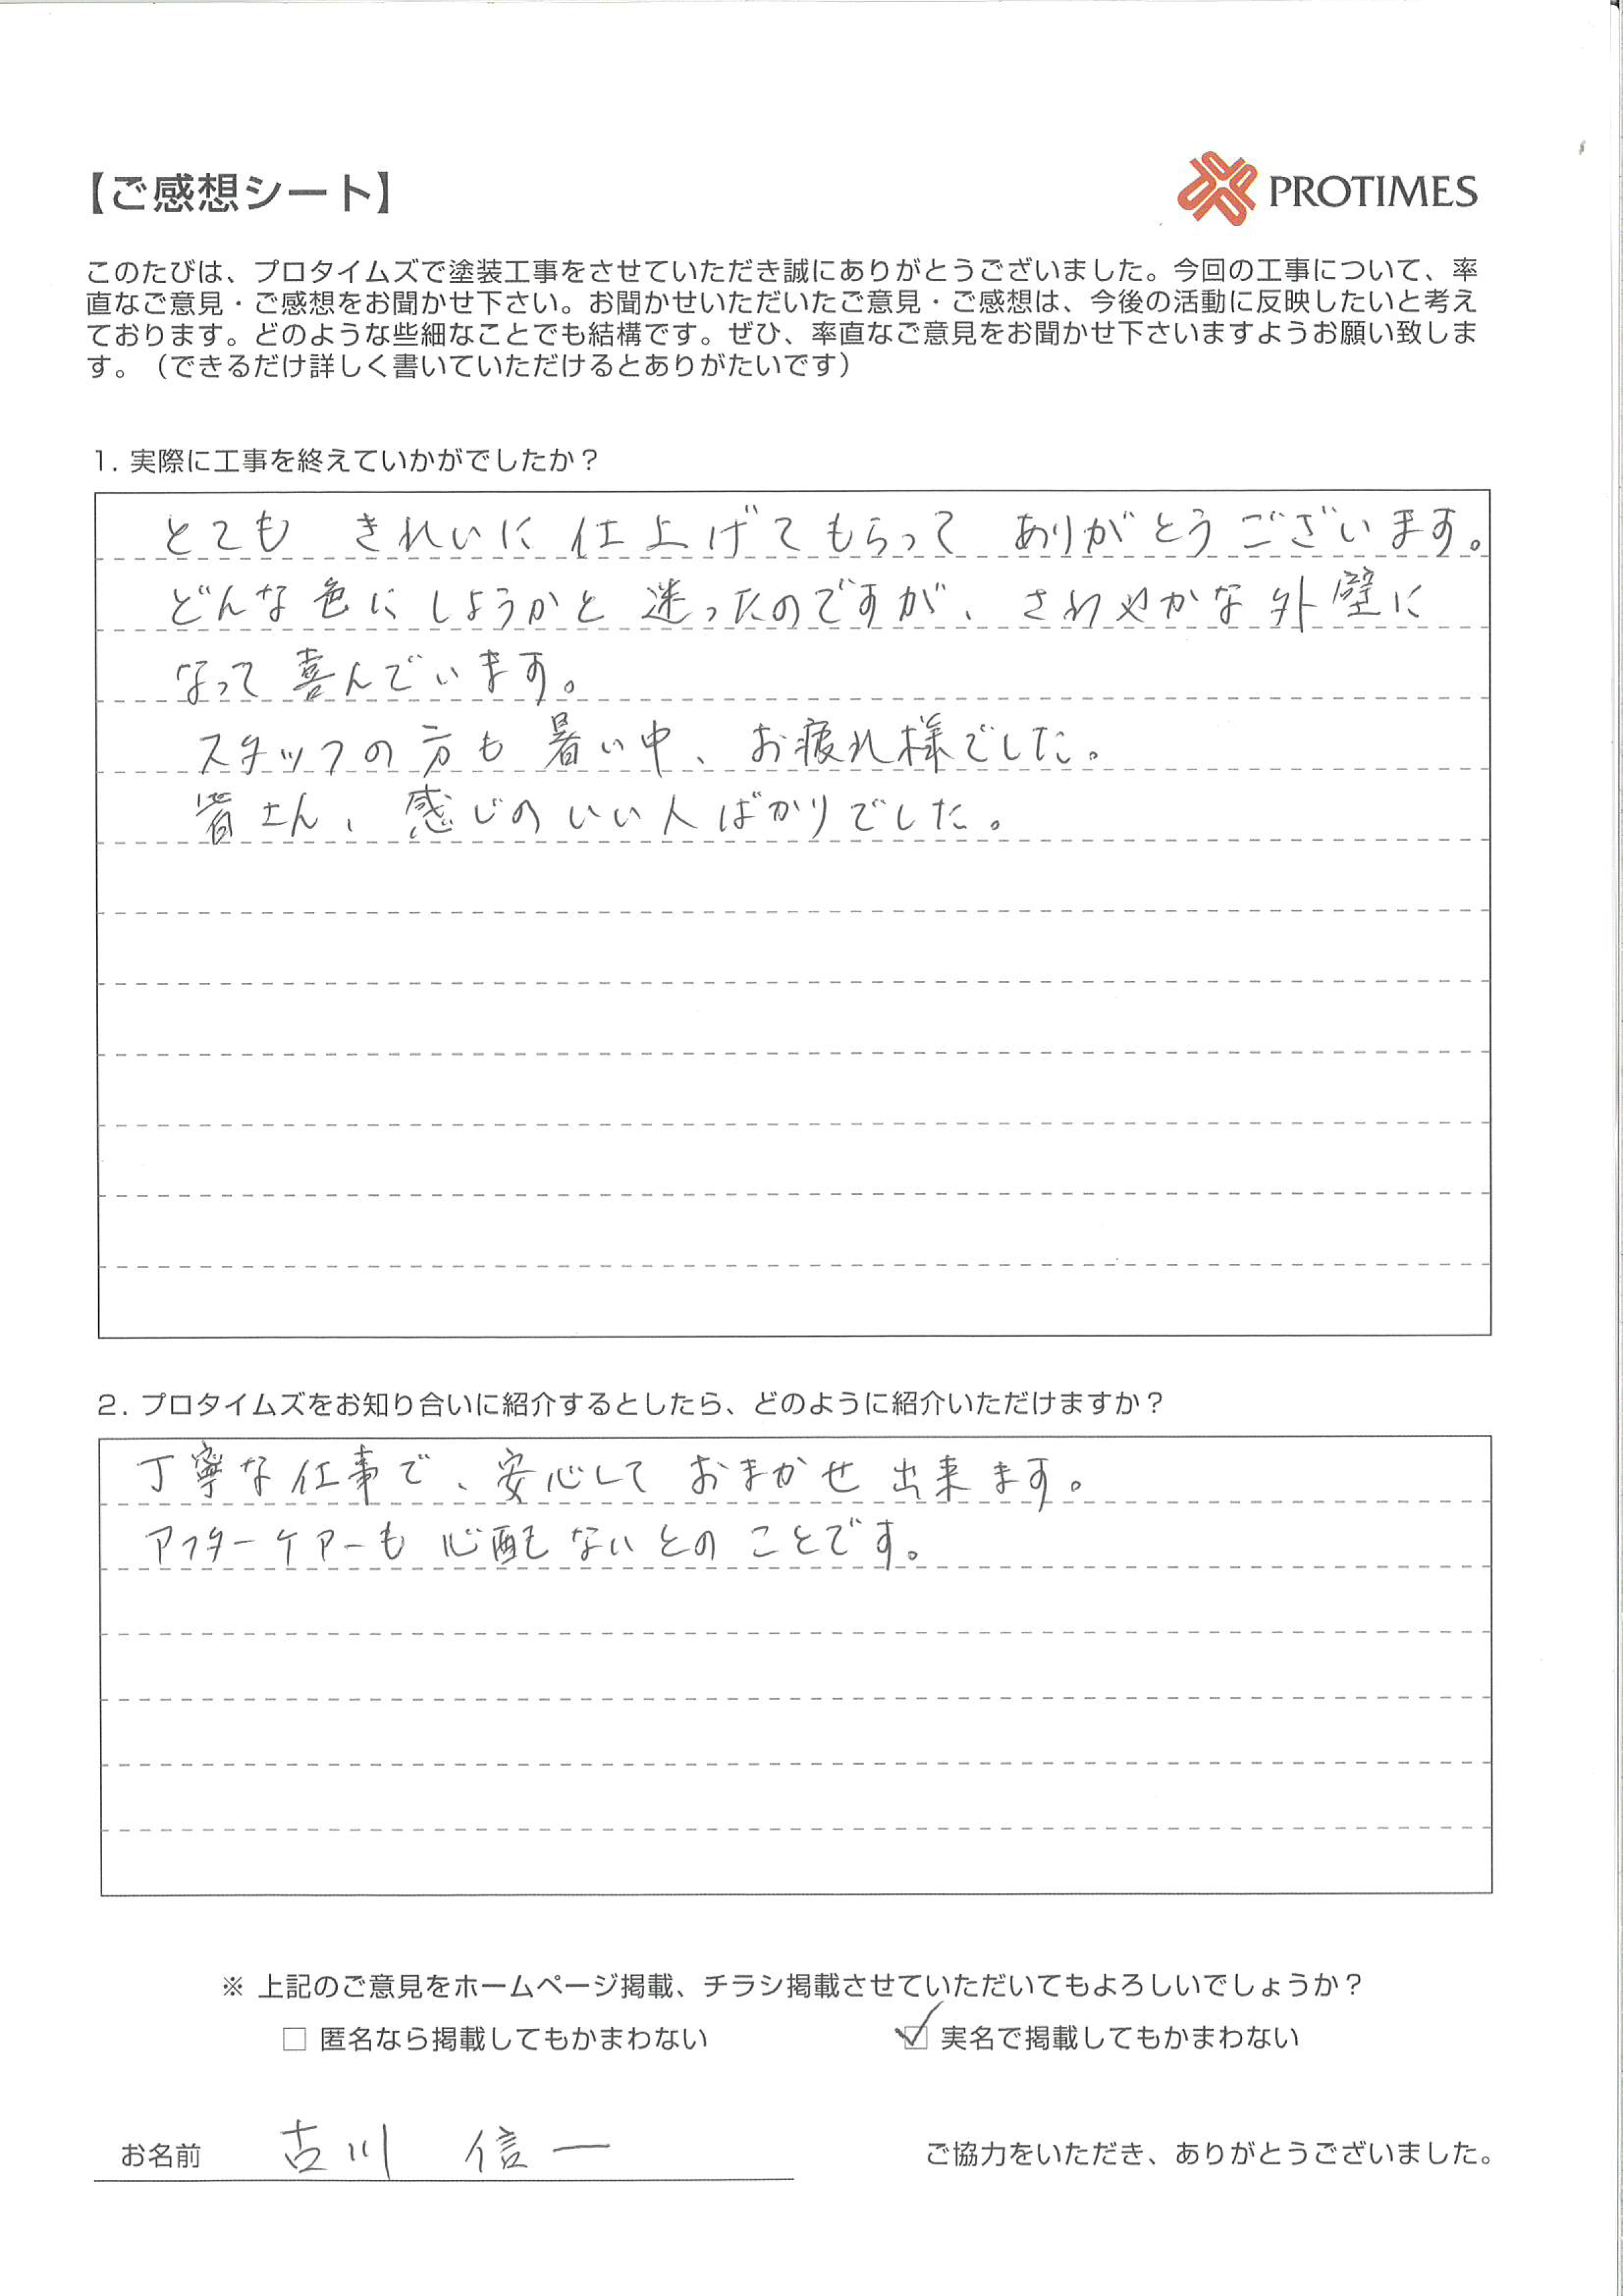 【ご感想シート】
PROTIMES
このたびは、プロタイムズで塗装工事をさせていただき誠にありがとうございました。今回の工事について、率
直なご意見・ご感想をお聞かせ下さい。お聞かせいただいたご意見・ご感想は、今後の活動に反映したいと考え
ております。どのような些細なことでも結構です。ぜひ、率直なご意見をお聞かせ下さいますようお願い致しま
す。（できるだけ詳しく書いていただけるとありがたいです）
1. 実際に工事を終えていかがでしたか？
とても きれいに 仕上げてもらって ありがとうございます。
どんな色にしようかと迷ったのですが、さわやかな外壁に
なって喜んでいます。
スタッフの方も暑い中、お疲れ様でした。
皆さん、感じのいい人ばかりでした。
2. プロタイムズをお知り合いに紹介するとしたら、どのように紹介いただけますか？
丁寧な仕事で、安心しておまかせ出来ます。
アフターケアーも心配ないとのことです。
※ 上記のご意見をホームページ掲載、チラシ掲載させていただいてもよろしいでしょうか？
□ 匿名なら掲載してもかまわない ☑ 実名で掲載してもかまわない
お名前 古川 信一 ご協力をいただき、ありがとうございました。